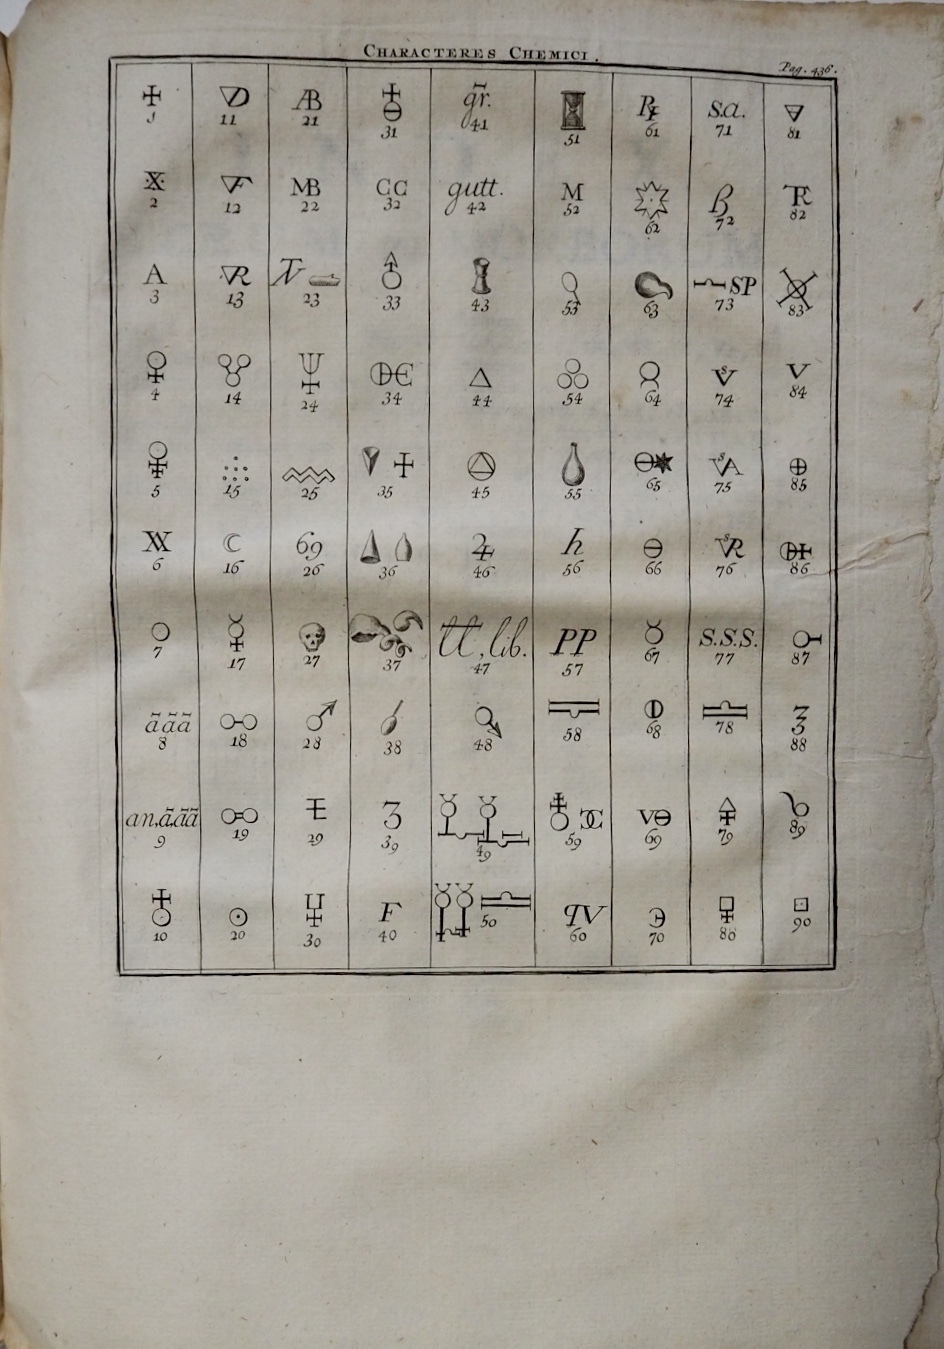 CHARACTERES CHEMICI.
Pag. 436.
1
2
A
3
4
5
6
7
ā ā ā
8
an, ā.āā
9
10
11
12
13
14
15
16
17
18
19
20
21
MB
22
23
24
25
69
26
27
28
29
30
31
CC
32
33
34
35
36
37
38
3
39
F
40
gr.
41
gutt.
42
43
44
45
46
lib.
47
48
49
50
51
M
52
53
54
55
h
56
PP
57
58
59
60
℞
61
62
63
64
65
66
67
68
69
70
s.a.
71
ß
72
SP
73
74
75
76
S.S.S.
77
78
79
80
81
82
83
V
84
85
86
87
88
89
90